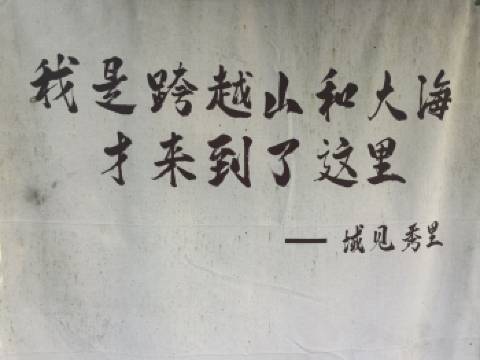 我是跨越山和大海
才来到了这里
—— 域见秀里